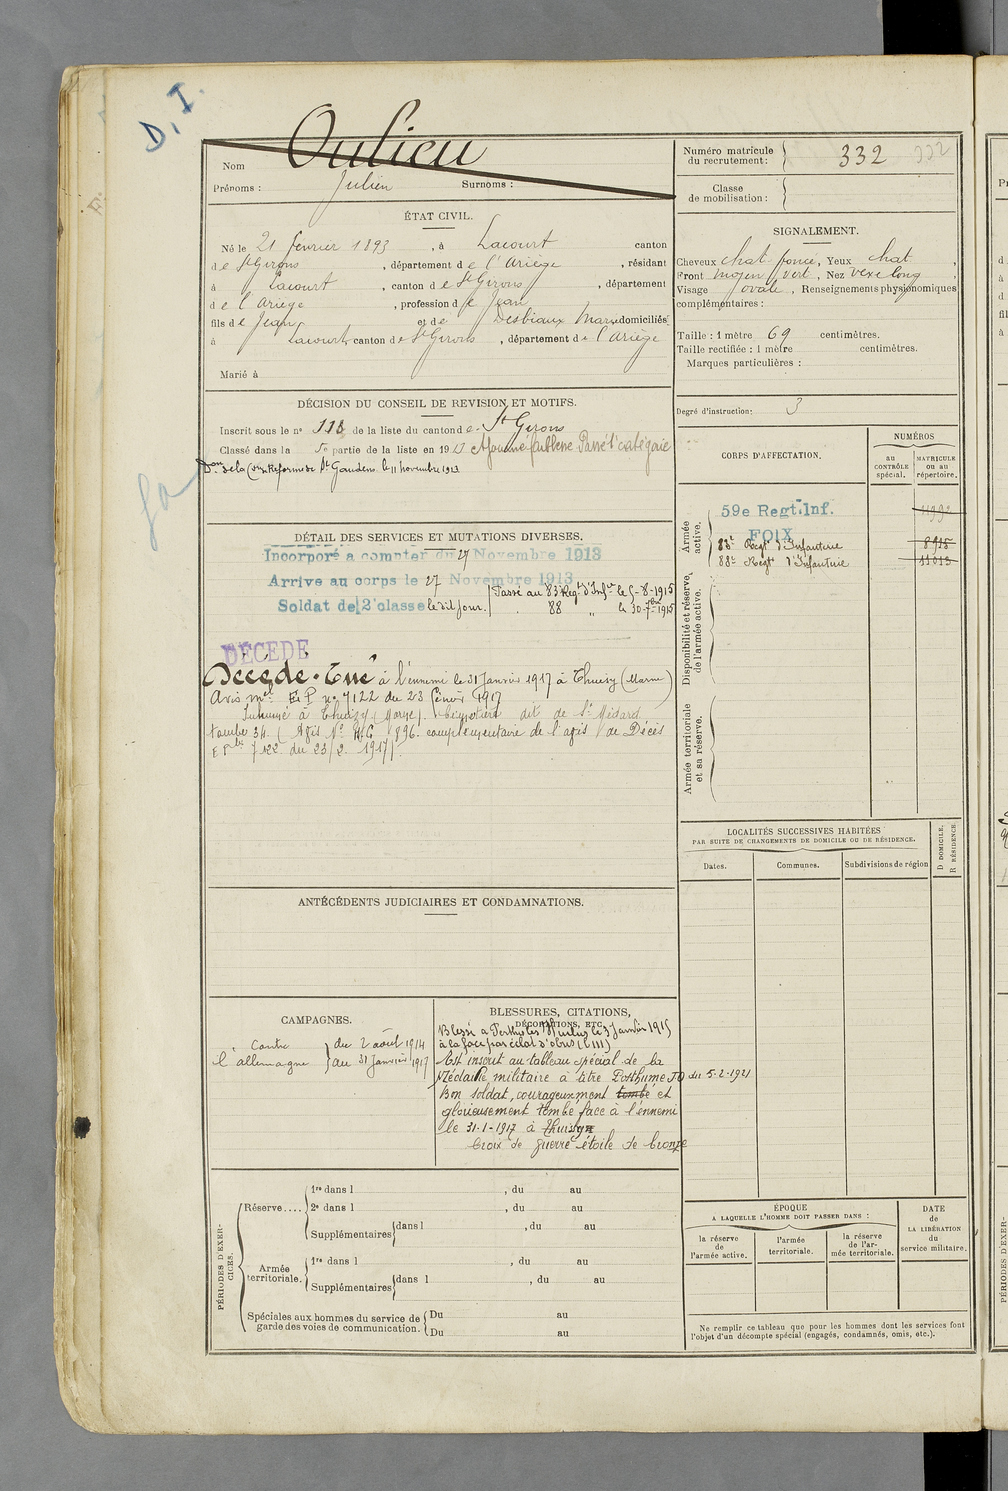 D. I.
Nom Oulieu
Prénoms : Julien Surnoms :
Numéro matricule
du recrutement : 332 332
Classe
de mobilisation :
ÉTAT CIVIL.
Né le 21 février 1893, à Lacourt canton
de St Girons, département de l'Ariège, résidant
à Lacourt, canton de St Girons, département
de l'Ariège, profession de
fils de Jean et de Desbiaux Marie domiciliés
à Lacourt, canton de St Girons, département de l'Ariège
Marié à
SIGNALEMENT.
Cheveux chat. foncé, Yeux chat,
Front moyen vert, Nez vexe long,
Visage ovale, Renseignements physionomiques
complémentaires :
Taille : 1 mètre 69 centimètres.
Taille rectifiée : 1 mètre centimètres.
Marques particulières :
Degré d'instruction : 3
DÉCISION DU CONSEIL DE REVISION ET MOTIFS.
Inscrit sous le n° 113 de la liste du canton de St Girons
Classé dans la 5e partie de la liste en 1913 Ajourné faiblesse Passé 1e catégorie
Don de la Con Réforme de St Gaudens le 11 novembre 1913
CORPS D'AFFECTATION.
NUMÉROS
au
CONTRÔLE
spécial.
MATRICULE
ou au
répertoire.
Armée
active.
59e Regt. Inf.
FOIX
83e Régt d'Infanterie 8915
88e Régt d'Infanterie 11013
Disponibilité et réserve
de l'armée active.
Armée territoriale
et sa réserve.
DÉTAIL DES SERVICES ET MUTATIONS DIVERSES.
Incorporé a compter du 27 Novembre 1913
Arrive au corps le 27 Novembre 1913
Soldat de 2e classe le dit jour. Passé au 83 Régt d'Infie le 5-8-1915
88 „ le 30-7bre 1915
DECEDE
Décédé. Tué à l'ennemi le 31 Janvier 1917 à Thuizy (Marne)
Avis mel E.P. n° 7122 du 23 février 1917
Inhumé à Thuizy (Marne). Cimetière dit de St Médard
tombe 34. (Avis N° A.G. 896. complémentaire de l'avis de Décès
7122 du 23/2. 1917)
LOCALITÉS SUCCESSIVES HABITÉES
PAR SUITE DE CHANGEMENTS DE DOMICILE OU DE RÉSIDENCE.
Dates.
Communes.
Subdivisions de région
D DOMICILE.
R RÉSIDENCE
ANTÉCÉDENTS JUDICIAIRES ET CONDAMNATIONS.
CAMPAGNES.
Contre
l'allemagne
du 2 août 1914
au 31 Janvier 1917
BLESSURES, CITATIONS,
DÉCORATIONS, ETC.
Blessé à Perthes les Hurlus le 3 Janvier 1915
à la face par éclat d'obus
Est inscrit au tableau spécial de la
Médaille militaire à titre Posthume JO du 5-2-1921
Bon soldat, courageusement tombé et
glorieusement tombé face à l'ennemi
le 31-1-1917 à Thuizy
Croix de guerre étoile de bronze
PÉRIODES D'EXER-
CICES.
Réserve....
1re dans l , du au
2e dans l , du au
Supplémentaires dans l , du au
Armée
territoriale.
1re dans l , du au
Supplémentaires dans l , du au
Spéciales aux hommes du service de
garde des voies de communication.
Du au
Du au
ÉPOQUE
A LAQUELLE L'HOMME DOIT PASSER DANS :
la réserve
de
l'armée active.
l'armée
territoriale.
la réserve
de l'ar-
mée territoriale.
DATE
de
LA LIBÉRATION
du
service militaire.
Ne remplir ce tableau que pour les hommes dont les services font
l'objet d'un décompte spécial (engagés, condamnés, omis, etc.).